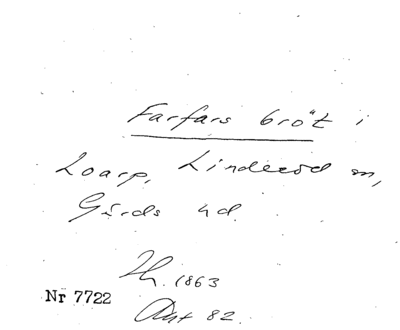 Farfars bröt i
Loarp, Linderöd sn,
Gärds hd.
Th. 1863
Nr 7722
82.